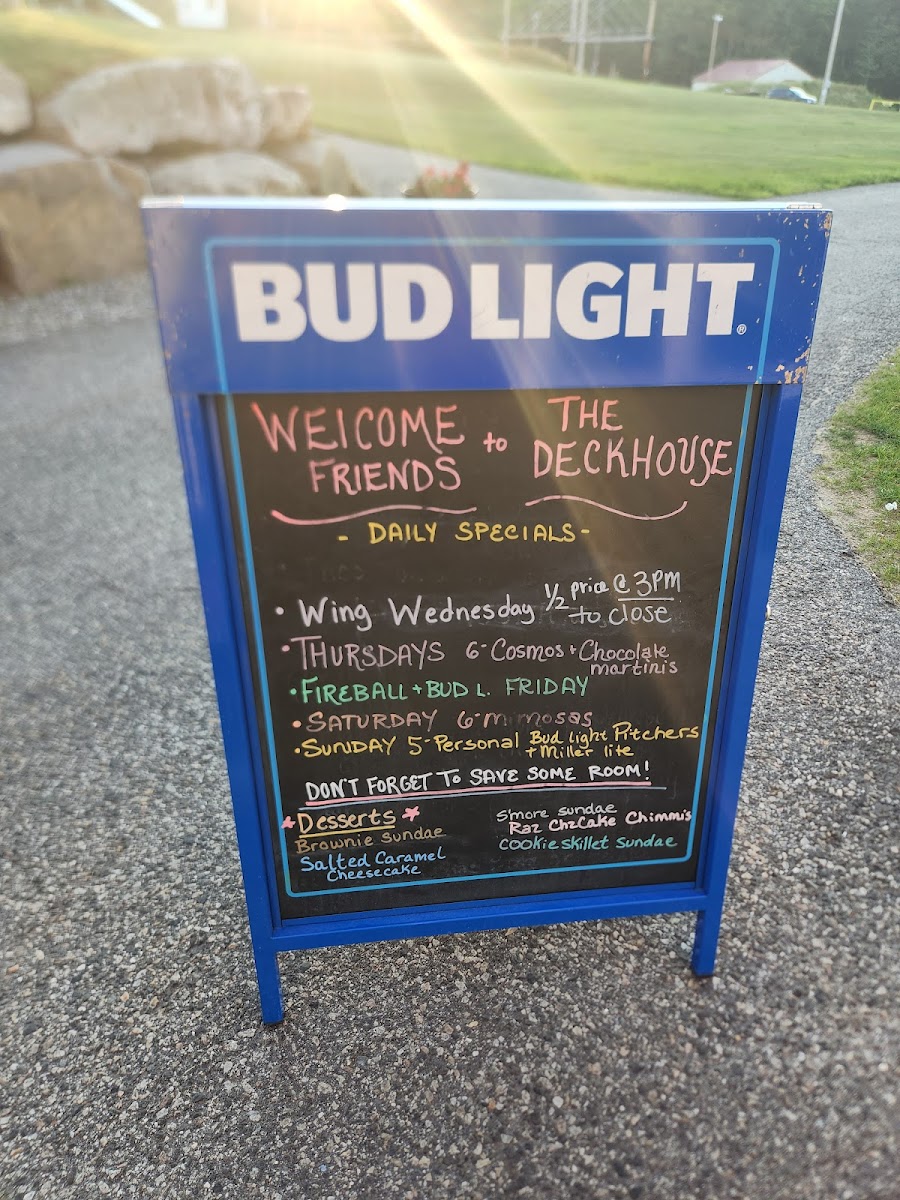 BUD LIGHT®
WElCOME FRIENDS to THE DECKHOUSE
- DAILY SPECIALS -
• Wing Wednesday ½ price @ 3PM to close
• THURSDAYS 6- Cosmos + Chocolate martinis
• FIREBALL + BUD L. FRIDAY
• SATURDAY 6- mimosas
• SUNDAY 5- Personal Bud light Pitchers + Miller lite
DON'T FORGET TO SAVE SOME ROOM!
* Desserts *
Brownie Sundae
Salted Caramel Cheesecake
S'more sundae
Raz ChzCake Chimmi's
Cookie skillet Sundae